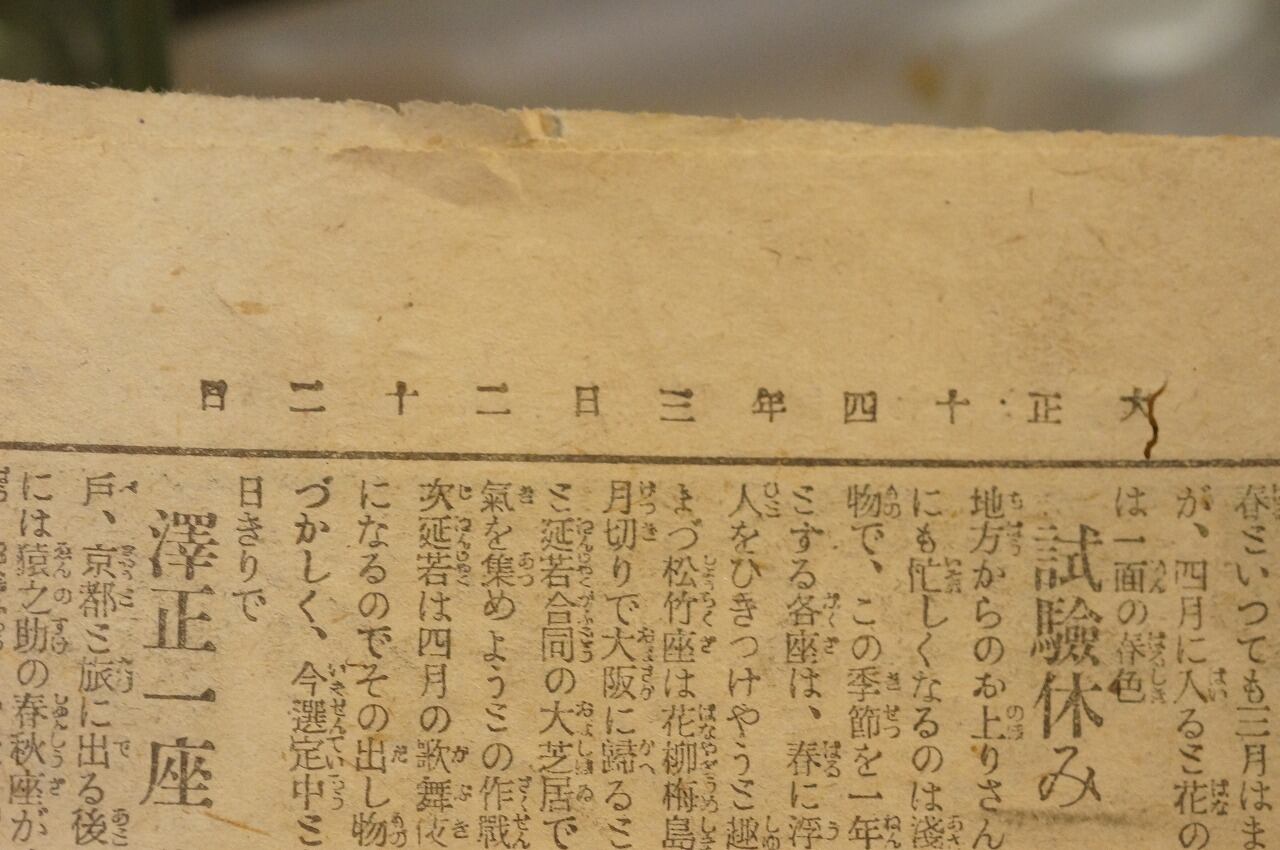 大正十四年三日二十二日
春ミいつても三月はま
が、四月に入るミ花の
は一面の春色
試驗休み
地方からのお上りさん
にも忙しくなるのは淺
物で、この季節を一年
ミする各座は、春に浮
人をひきつけやうミ趣
まづ松竹座は花柳梅島
月切りで大阪に歸るミ
ミ延若合同の大芝居で
氣を集めようミの作戰
次延若は四月の歌舞伎
になるのでその出し物
づかしく、今選定中ミ
日きりで
澤正一座
戶、京都ミ旅に出る後
には猿之助の春秋座が